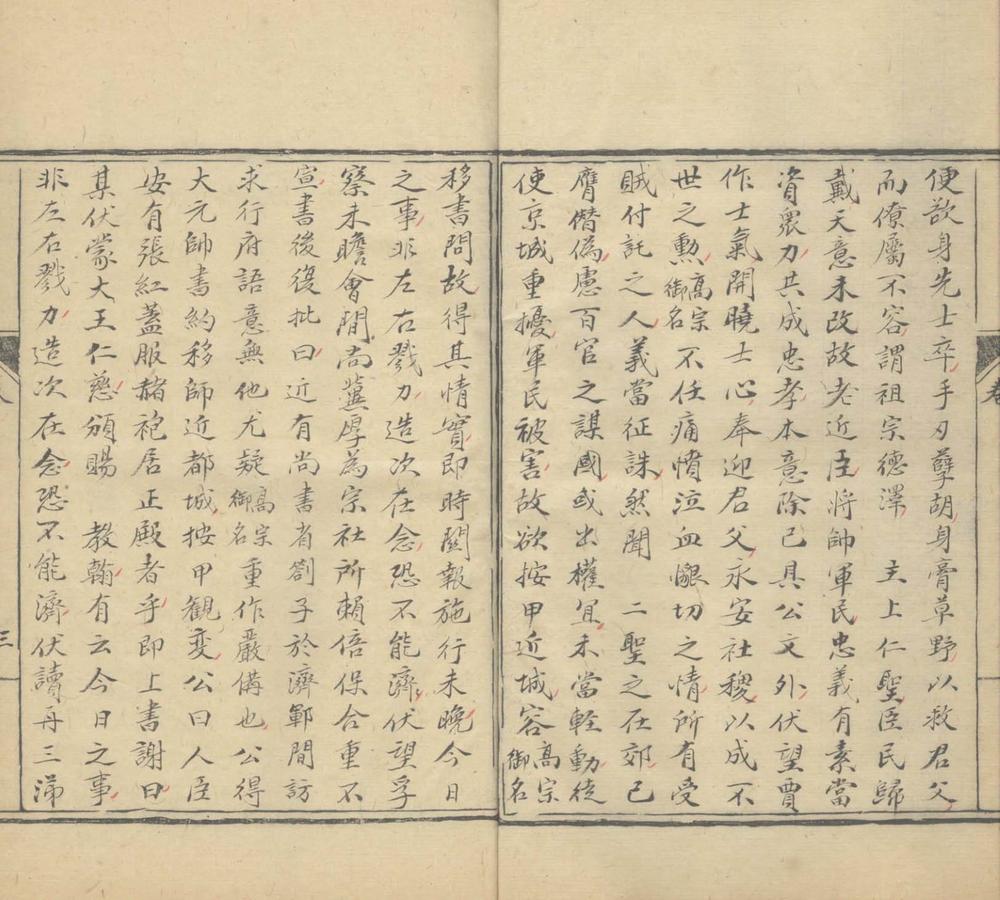 便欲身先士卒手刃孽胡身膏草野以救君父
而僚屬不容謂祖宗德澤　主上仁聖臣民歸
戴天意未改故老近臣將帥軍民忠義有素當
資眾力共成忠孝本意除已具公文外伏望賈
作士氣開曉士心奉迎君父永安社稷以成不
世之勳高宗御名不任痛憤泣血懇切之情所有受
賊付託之人義當征誅然聞　二聖之在郊已
膺僭偽慮百官之謀國或出權宜未當輕動徒
使京城重擾軍民被害故欲按甲近城容高宗御名
移書問故得其情實即時關報施行未晚今日
之事非左右戮力造次在念恐不能濟伏望孚
察未瞻會間尚冀厚為宗社所賴倍保合重不
宣書後復批曰近有尚書省劄子於濟鄆間訪
求行府語意無他尤疑高宗御名重作嚴備也公得
大元帥書約移師近都城按甲觀變公曰人臣
安有張紅蓋服赭袍居正殿者乎即上書謝曰
某伏蒙大王仁慈頒賜　教翰有云今日之事
非左右戮力造次在念恐不能濟伏讀再三涕
卷
三